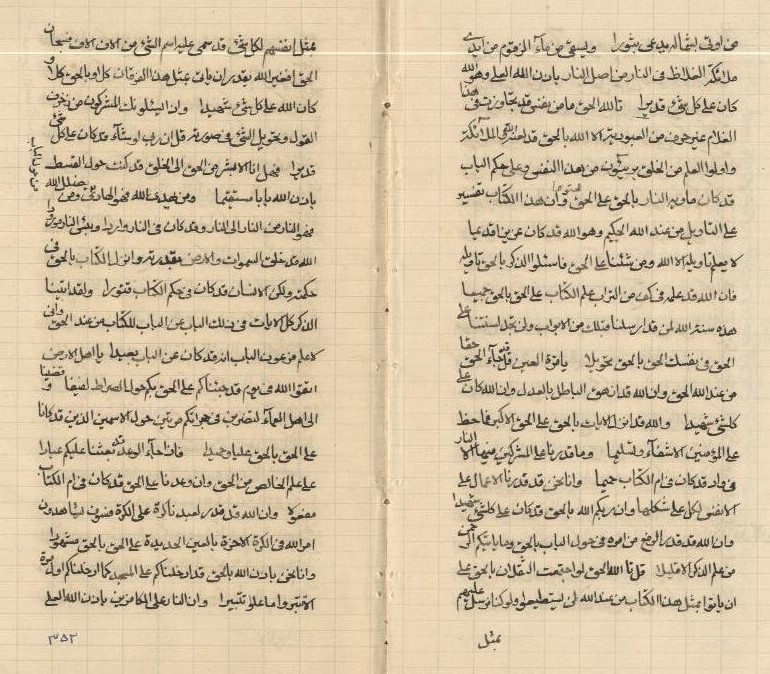 من اوتي بشماله يدعى ثبورا ويسقى من ماء الزقوم من ايدي
ملائكة الغلاظ في النار من اصل النار باذن الله العلي وهو الله
كان على كل شيء قديرا تالله الحق ما من نفس قد تجاوزت في هذا
الغلام غير حرف من العبودية الا الله بالحق قد
واولوا العلم من الخلق بريئون من هذا النفس وعلى حكم الباب
قد كان ماويه النار بالحق على الحق وان هذا الكتاب تفسير
على التاويل من عند الله الحكيم وهو الله قد كان عزيزا قديما
لا يعلم تاويله الا الله ومن شئنا على الحق فاسئلوا الذكر بالحق تاويله
فان الله قد علمه في كف من التراب علم الكتاب على الحق بالحق جميعا
هذه سنة الله لمن قد ارسلنا من قبلك من الابواب ولن تجد لسنتنا على
الحق في نفسك الحق بالحق تحويلا يا قرة العين قل قد جاء الحق حقا
من عند الله الحق وان الله قد ازهق الباطل بالعدل وان الله كان على
كل شيء شهيدا والله قد انزل الايات بالحق على الحق الاكبر فاحفظ
على المؤمنين الا شفاء وتسليما وما قدرنا على المشركين منها الا النار
في وار قد كان في ام الكتاب حميما وانا نحن قد قدرنا الاعمال على
الانفس لكل على شكلها وان ربكم الله بالحق قد كان على كل شيء شهيدا
وان الله قد قدر الروح من امره في حول الباب بالحق وما ياتيكم الرحمن
من علم الذكر الا قليلا قل تالله الحق لو اجتمعت الثقلان بالحق على
ان ياتوا بمثل هذا الكتاب من عند الله لن يستطيعوا ولو كنا نرسل عليهم
بمثل
بمثل انفسهم لكل شيء قد سمي عليه اسم الشيء من الاف الاف فسبحان
الحق افغير الله يقدر ان يات بمثل هذا الفرقان كلا وبالحق كلا و
كان الله على كل شيء شهيدا وان يسئلونك المشركون من زخرف
القول وتحويل الشيء في صورته قل ان ربي لو شاء قد كان على كل شيء
قديرا فهل انا الا بشر من الحق الى الخلق قد كنت حول القسط
باذن الله بابا مستقيما ومن يهدي الله فهو الهادي ومن يضلل الله
من حول الباب
فهو النار من النار الى النار وقد كان في النار وارد وبئس النار مورودا
الله قد خلق السموات والارض بقدرته وانزل الكتاب بالحق في
حكمته ولكن الانسان قد كان في حكم الكتاب قتورا ولقد اتينا
الذكر كل الايات في ذلك الباب عن الباب للكتاب من عند الحق واني
لاعلم فرعون الباب انه قد كان عن الباب بعيدا يا اهل الارض
اتقوا الله في يوم قد جئناكم على الحق بكم حول الصراط لفيفا و
الى اهل العماء لتصرين في هوائكم مرتين حول الاسمين الذين قد كانا
على الحق بالحق عليا وحميدا فاذا جاء الوعد قد بعثنا عليكم عبادا
على علم الخالص من الحق وان وعدنا على الحق قد كان في ام الكتاب
مفعولا وان الله قد قدر لعبدنا كرة على الكرة فسوف تشاهدون
امر الله في الكرة الاخرة بالعين الحديدة على الحق بالحق مشهودا
وانا نحن باذن الله بالحق قد ادخلناكم على المسجد كما ادخلناكم اول مرة
الا تتبروا ما علوا تتبيرا وان النار على الكافرين باذن الله العلي
٣٥٢